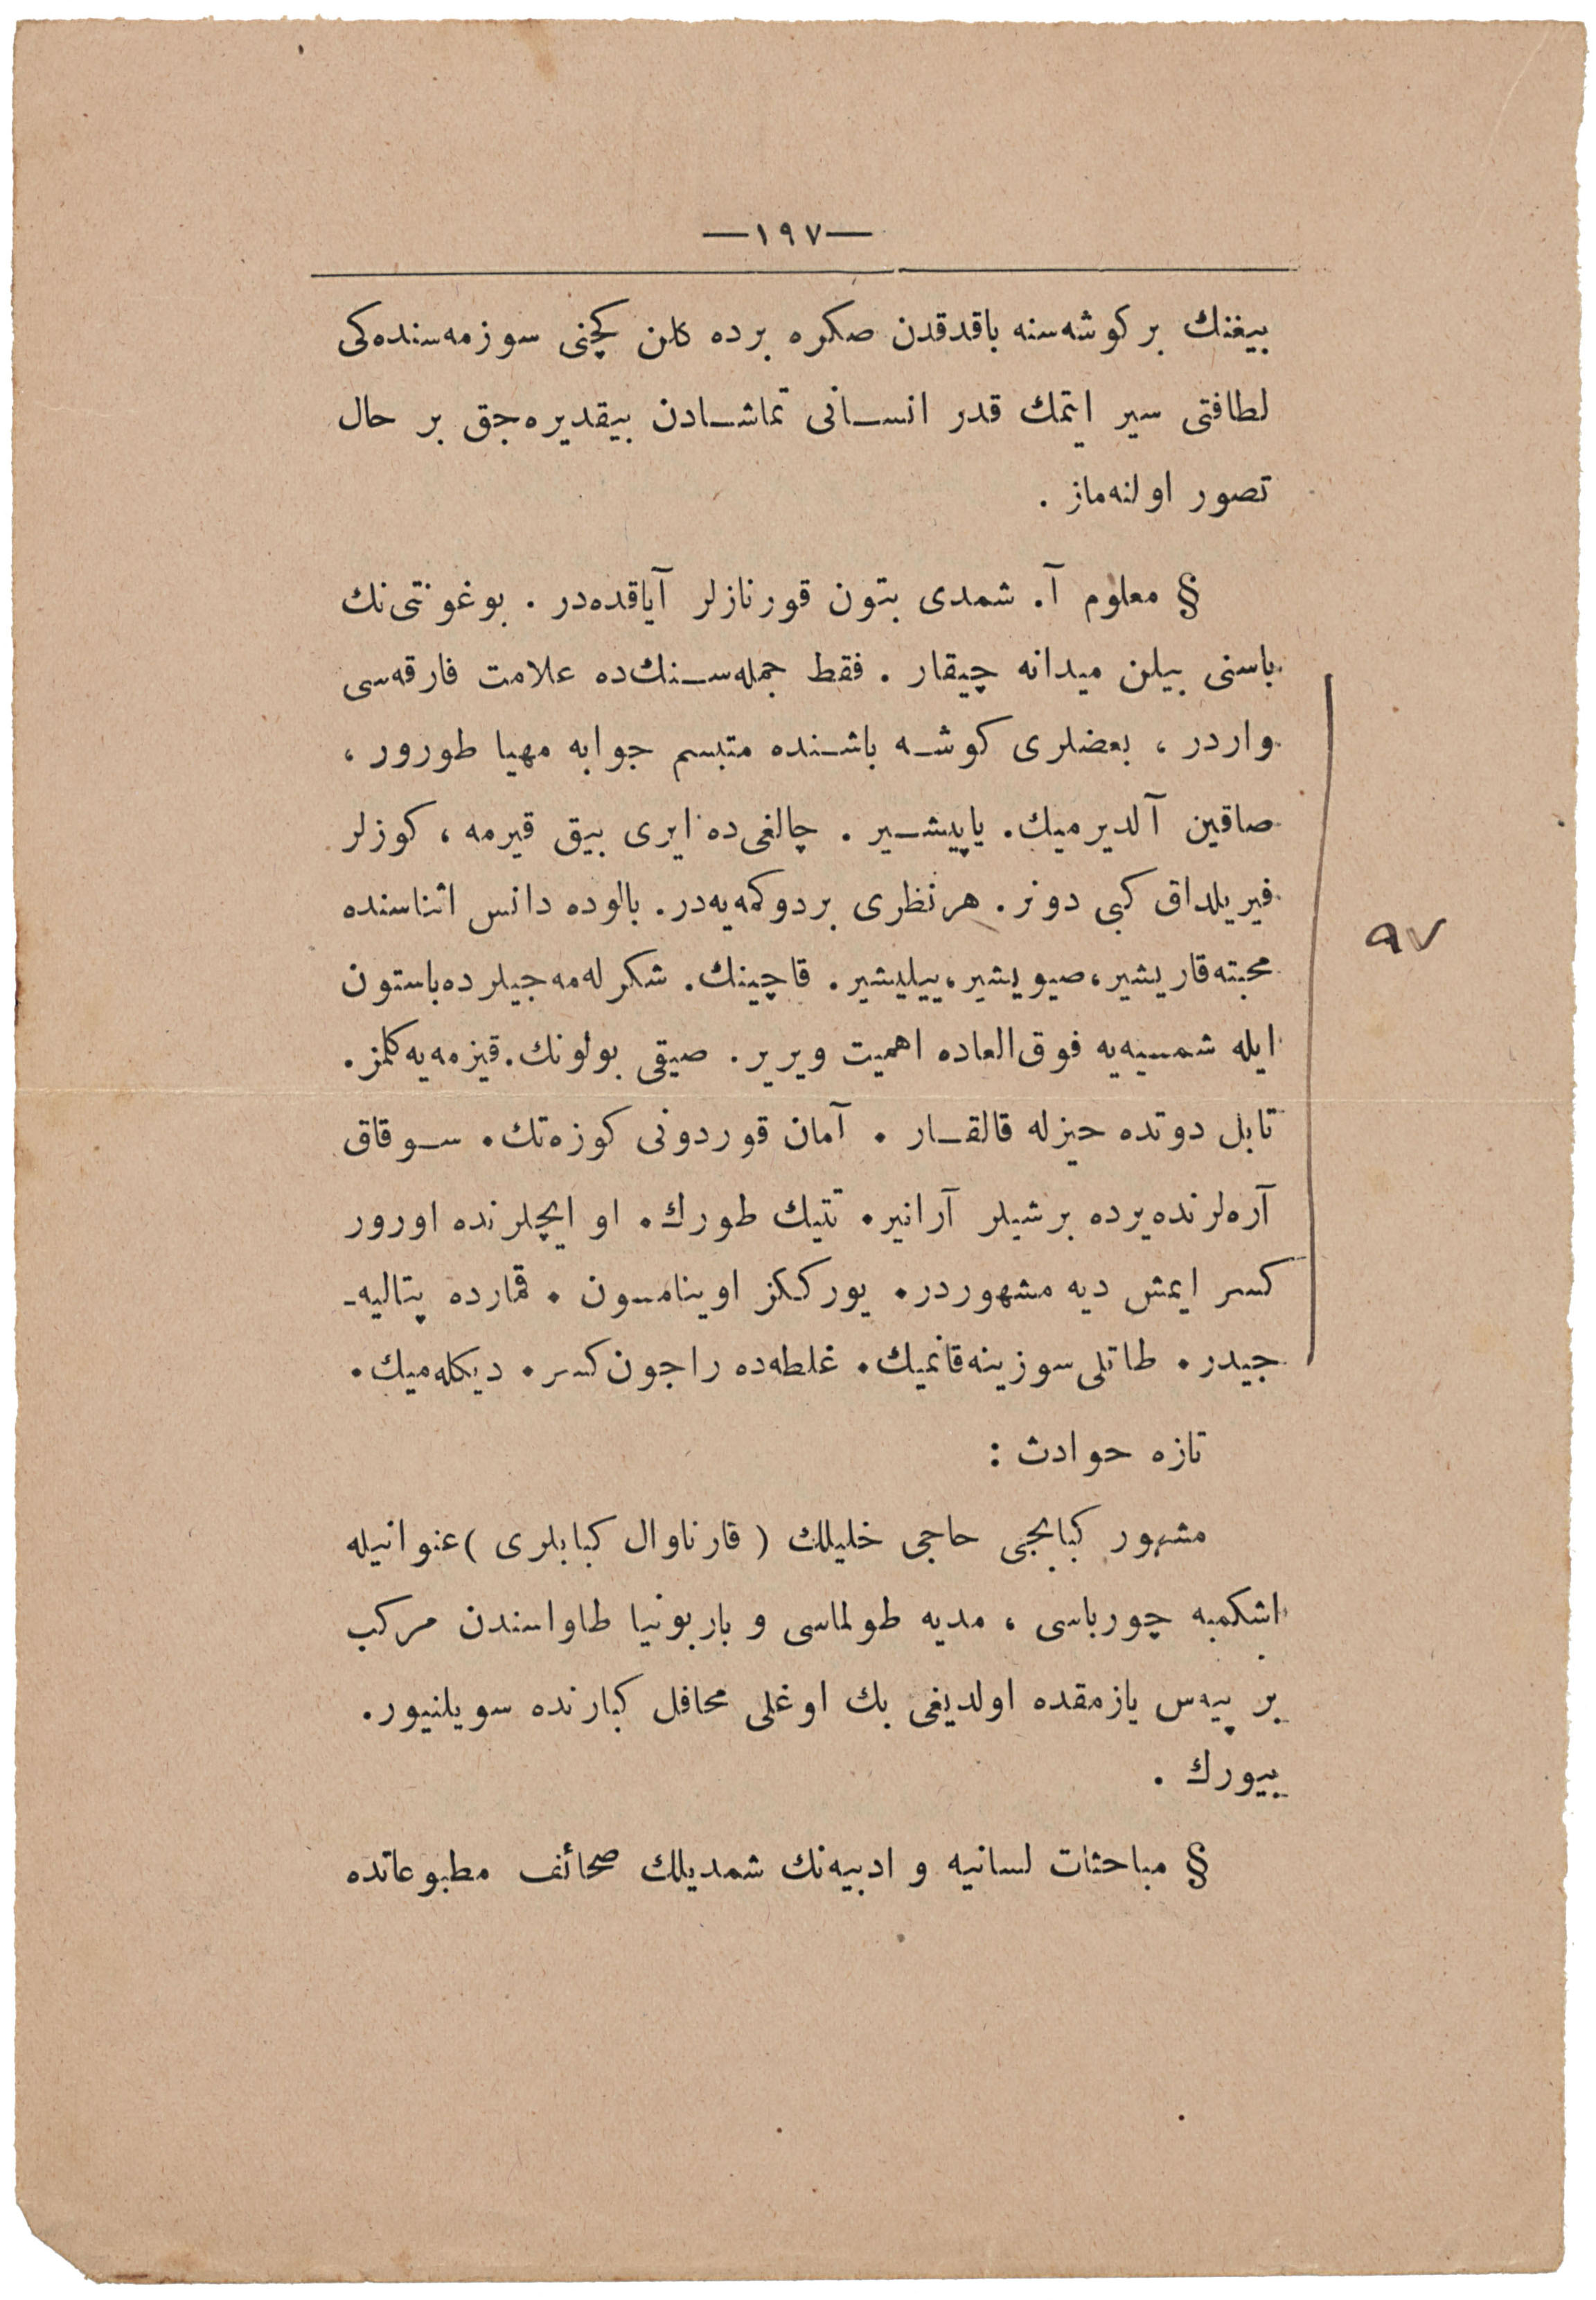 —١٩٧—
بيغنك بر كوشه‌سنه باقدقدن صكره برده كلن كچنى سوزمه‌سنده‌كى
لطافتى سير ايتمك قدر انسانى تماشادن بيقديره‌جق بر حال
تصور اولنه‌ماز .
§ معلوم آ. شمدى بتون قورنازلر آياقده‌در . بوغونتى‌نك
باسنى بيلن ميدانه چيقار . فقط جمله‌سنك‌ده علامت فارقه‌سى
واردر ، بعضلرى كوشه باشنده متبسم جوابه مهيا طورور ،
صاقين آلديرميك. ياپيشير . چالغى‌ده ايرى بيق قيرمه ، كوزلر
فيريلداق كبى دونر. هر نظرى بر دوكمه‌يه‌در. بالوده دانس اثناسنده
محبته قاريشير، صيويشير، ييليشير . قاچينك. شكرله‌مه‌جيلرده باستون
ايله شمسيه‌يه فوق‌العاده اهميت ويرير. صيقى بولونك. قيزمه‌يه كلمز.
تابل دوتده حيزله قالقار . آمان قوردونى كوزه‌تك. سوقاق
آره‌لرنده يرده برشيلر آرانير. تتيك طورك. او ايچلرنده اورور
كسر ايمش ديه مشهوردر. يوركگز اوينامسون . قمارده پتاليه‌ـ
جيدر. طاتلى سوزينه قانميك. غلطه‌ده راجون كسر. ديكله‌ميك.
٩٧
تازه حوادث :
مشهور كبابجى حاجى خليلك ( قارناوال كبابلرى ) عنوانيله
اشكمبه چورباسى ، مديه طولماسى و باربونيا طاواسندن مركب
بر پيه‌س يازمقده اولديغى بك اوغلى محافل كبارنده سويلنيور.
بيورك .
§ مباحثات لسانيه و ادبيه‌نك شمديلك صحائف مطبوعاتده